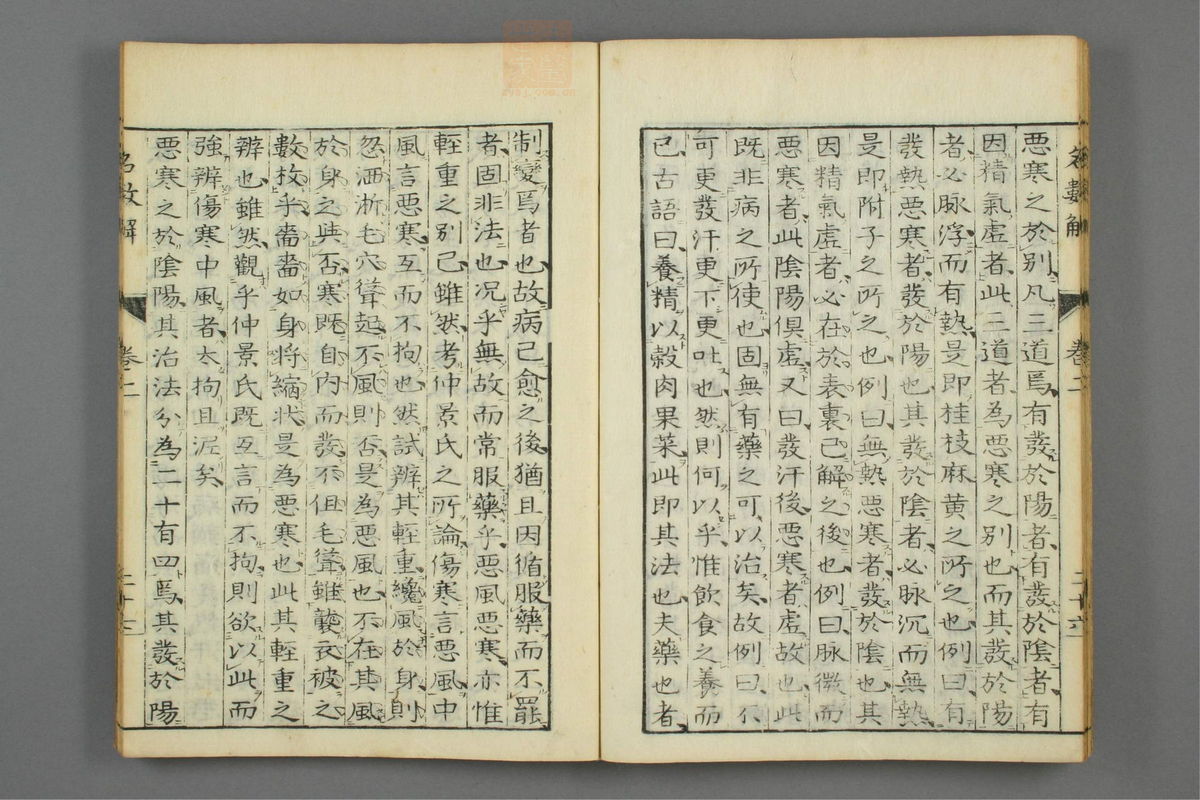 惡寒之於別凡三道焉有發於陽者有發於陰者有
因精氣虛者此三道者為惡寒之別也而其發於陽
者必脉浮而有熱是即桂枝麻黃之所之也例曰有
發熱惡寒者發於陽也其發於陰者必脉沉而無熱
是即附子之所之也例曰無熱惡寒者發於陰也其
因精氣虛者必在於表裏已解之後也例曰脉微而
惡寒者此陰陽俱虛又曰發汗後惡寒者虛故也此
既非病之所使也固無有藥之可以治矣故例曰不
可更發汗更下更吐也然則何以乎惟飲食之養而
已古語曰養精以穀肉果菜此即其法也夫藥也者
卷二
二十六
制變焉者也故病已愈之後猶且因循服藥而不罷
者固非法也况乎無故而常服藥乎惡風惡寒亦惟
輕重之別已雖然考仲景氏之所論傷寒言惡風中
風言惡寒互而不拘也然試辨其輕重纔風於身則
忽洒淅毛穴聳起不風則否是為惡風也不在其風
於身之與否寒既自內而發不但毛聳雖襲衣被之
數枚乎嗇嗇如身將縮狀是為惡寒也此其輕重之
辨也雖然觀乎仲景氏既互言而不拘則欲以此而
強辨傷寒中風者太拘且泥矣
惡寒之於陰陽其治法分為二十有四焉其發於陽
名數解
卷二
二十七